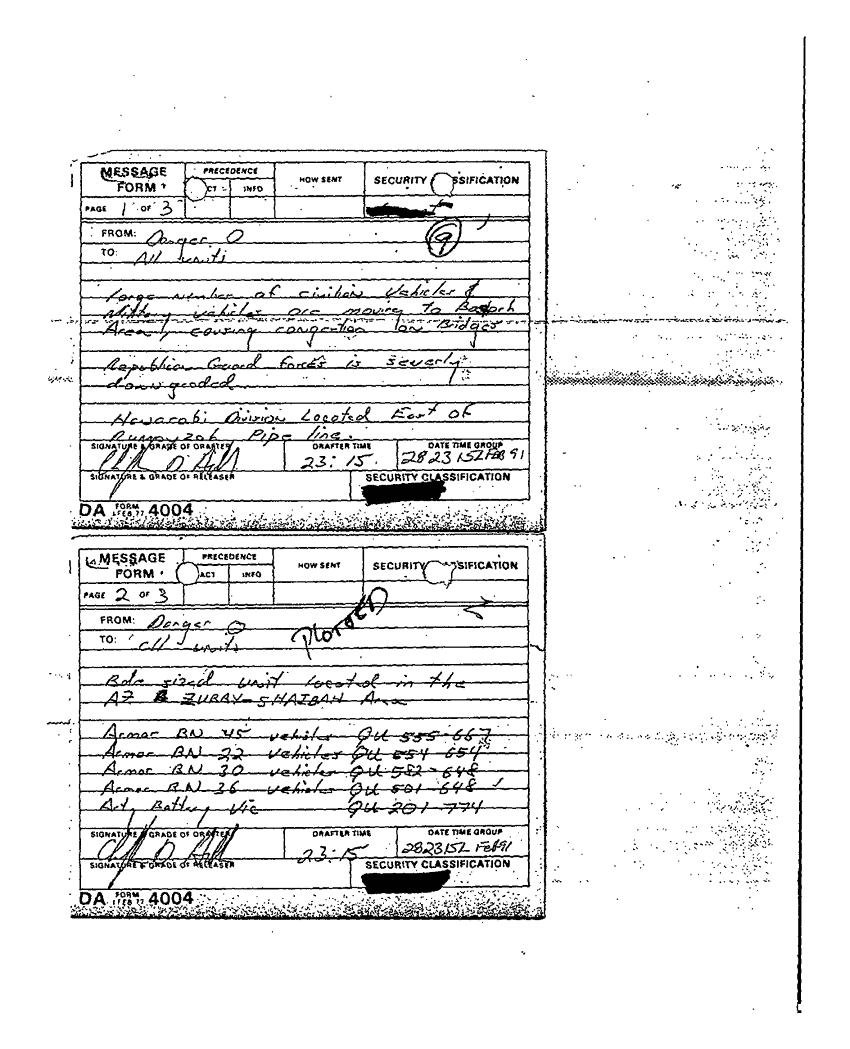 MESSAGE FORM PRECEDENCE ACT INFO HOW SENT SECURITY SSIFICATION
PAGE 1 OF 3
FROM: Danger O
9
TO: All units
Large number of civilian Vehicles &
Military vehicles are moving to Basrah
Area, causing congestion on Bridges
Republican Guard Forces is severly
downgraded
Division Located East of
Pipe line.
SIGNATURE & GRADE OF DRAFTER DRAFTER TIME DATE TIME GROUP
23:15. 282315Z FEB 91
SIGNATURE & GRADE OF RELEASER SECURITY CLASSIFICATION
DA FORM 1 FEB 77 4004
MESSAGE FORM PRECEDENCE ACT INFO HOW SENT SECURITY SIFICATION
PAGE 2 OF 3
FROM: Danger O
PLOTTED
TO: all units
Bde sized unit located in the
AZ ZUBAY-SHAIBAH Area
Armor BN 45 vehicles QU 555-667
Armor BN 22 vehicles QU 554 654
Armor BN 30 vehicles QU 582-648
Armor BN 36 vehicles QU 501-648
Arty Battery Vic QU 201-774
SIGNATURE & GRADE OF DRAFTER DRAFTER TIME DATE TIME GROUP
23:15 282315Z Feb 91
SIGNATURE & GRADE OF RELEASER SECURITY CLASSIFICATION
DA FORM 1 FEB 77 4004